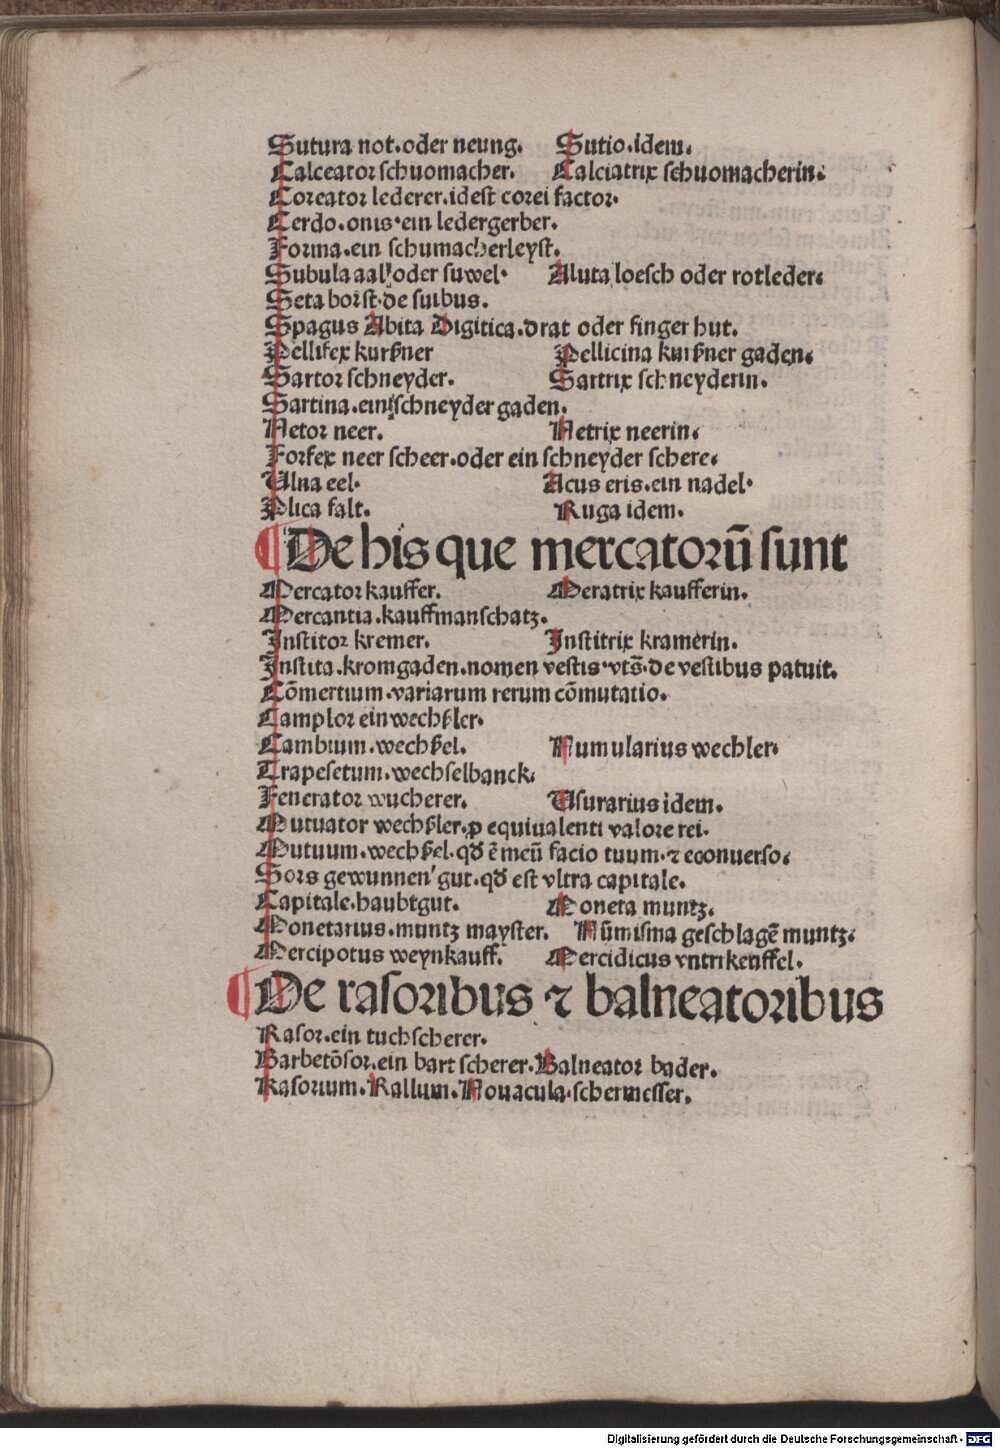 Sutura not.oder neung. Sutio.idem.
Calceator schuomacher. Calciatrix schuomacherin.
Coreator lederer.idest corei factor.
Cerdo.onis.ein ledergerber.
Forma.ein schumacherleyst.
Subula aal oder suwel. Aluta loesch oder rotleder.
Seta borst.de suibus.
Spagus Abita Digitica.drat oder finger hut.
Pellifex kurßner Pellicina kurßner gaden.
Sartor schneyder. Sartrix schneyderin.
Sartina.ein schneyder gaden.
Netor neer. Netrix neerin.
Forfex neer scheer.oder ein schneyder schere.
Ulna eel. Acus eris.ein nadel.
Plica falt. Ruga idem.
¶ De his que mercatorū sunt
Mercator kauffer. Meratrix kaufferin.
Mercantia.kauffmanschatz.
Institor kremer. Institrix kramerin.
Instita.kromgaden.nomen vestis.vts̄.de vestibus patuit.
Cōmertium.variarum rerum cōmutatio.
Campsor ein wechßler.
Cambium.wechßel. Numularius wechler.
Trapesetum.wechselbanck.
Fenerator wucherer. Usurarius idem.
Mutuator wechßler.ꝑ equiualenti valore rei.
Mutuum.wechßel.qđ ē meū facio tuum.⁊ econuerso.
Sors gewunnen gut.qđ est vltra capitale.
Capitale.haubtgut. Moneta muntz.
Monetarius.muntz mayster. Nūmisma geschlagē muntz.
Mercipotus weynkauff. Mercidicus vntrikeuffel.
¶ De rasoribus ⁊ balneatoribus
Rasor.ein tuchscherer.
Barbetōsor.ein bart scherer.Balneator bader.
Rasorium.Rallum.Nouacula.schermesser.
Digitalisierung gefördert durch die Deutsche Forschungsgemeinschaft - DFG